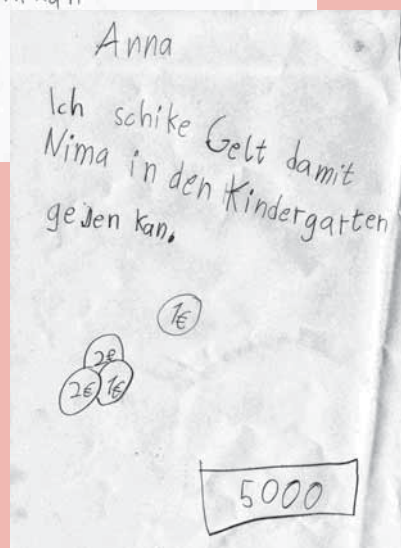 Anna
Ich schike Gelt damit
Nima in den Kindergarten
gehen kan.
1€
2€
2€ 1€
5000